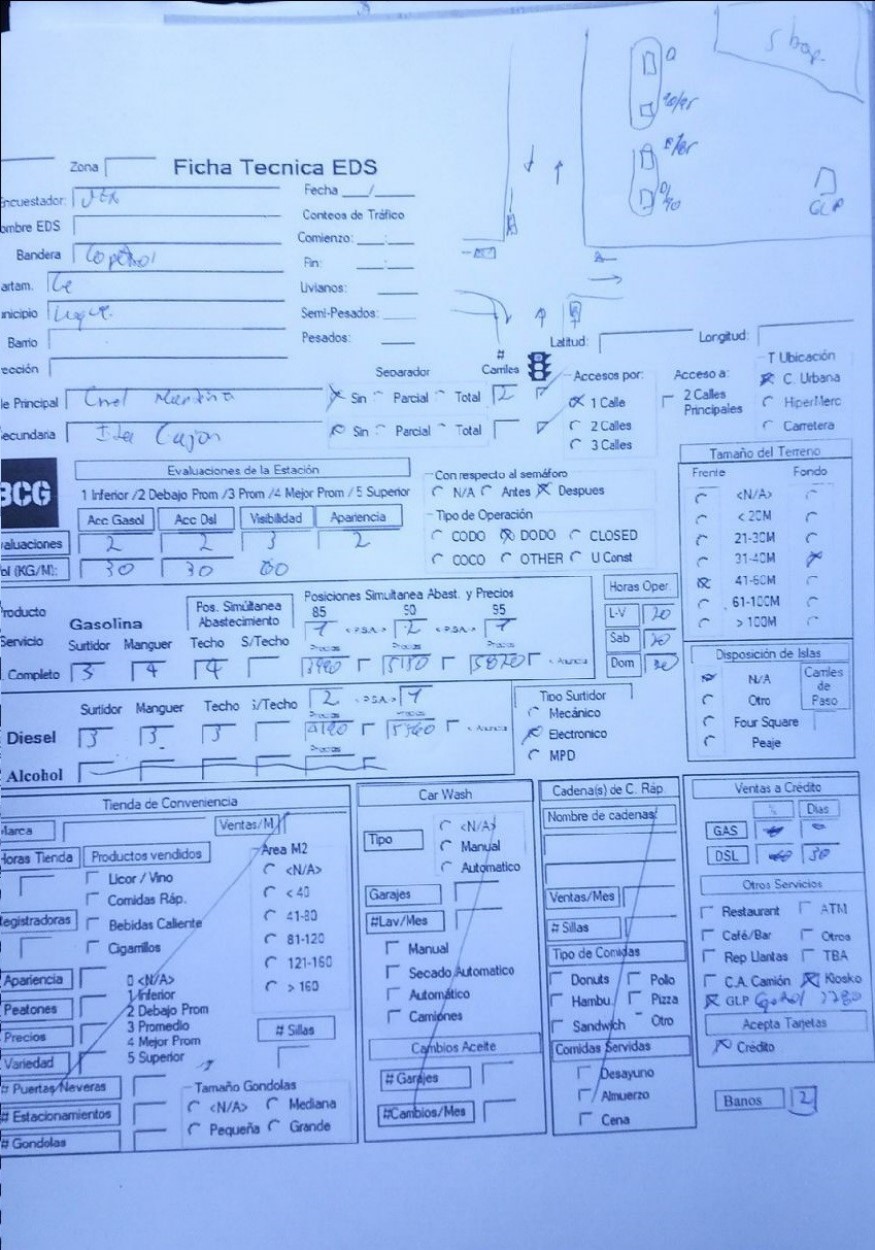 Shop
D
90/95
D
90
GLP
Zona
Ficha Tecnica EDS
Encuestador:
Fecha / 
ombre EDS
Conteos de Tráfico
Comienzo: :
Bandera Copetrol
Fin: :
artam. Ce
Livianos:
nicipio Luque.
Semi-Pesados:
Barrio
Pesados:
ección
Latitud: Longitud:
# Carriles
Separador
Accesos por:
Acceso a:
T Ubicación
le Principal Cnel Martinez
Sin Parcial Total 2
1 Calle
2 Calles Principales
C. Urbana
ecundaria
Sin Parcial Total
2 Calles
HiperMerc
3 Calles
Carretera
BCG
Evaluaciones de la Estación
1 Inferior /2 Debajo Prom /3 Prom /4 Mejor Prom /5 Superior
Acc Gasol Acc Dsl Visibilidad Apariencia
aluaciones 2 2 3 2
ol (KG/M): 30 30 60
Con respecto al semáforo
N/A Antes Despues
Tipo de Operación
CODO DODO CLOSED
COCO OTHER U Const
Tamaño del Terreno
Frente Fondo
<N/A>
< 20M
21-30M
31-40M
41-60M
61-100M
> 100M
Producto
Gasolina
Pos. Simúltanea Abastecimiento
Posiciones Simultanea Abast. y Precios
85 90 95
2
Servicio Surtidor Manguer Techo S/Techo
Completo 3 4 4
Horas Oper.
L-V 20
Sab 20
Dom
Diesel
Surtidor Manguer Techo S/Techo
3 3 3
2
Alcohol
Tipo Surtidor
Mecánico
Electronico
MPD
Disposición de Islas
N/A
Otro
Four Square
Peaje
Carriles de Paso
Tienda de Conveniencia
Marca Ventas/M
Horas Tienda Productos vendidos
Licor / Vino
Comidas Ráp.
Registradoras
Bebidas Caliente
Cigarrillos
Area M2
<N/A>
< 40
41-80
81-120
121-160
> 160
Apariencia
Peatones
Precios
Variedad
0 <N/A>
1 Inferior
2 Debajo Prom
3 Promedio
4 Mejor Prom
5 Superior
# Sillas
# Puertas/Neveras
# Estacionamientos
# Gondolas
Tamaño Gondolas
<N/A> Mediana
Pequeña Grande
Car Wash
Tipo
<N/A>
Manual
Automatico
Garajes
#Lav/Mes
Manual
Secado Automatico
Automático
Camiones
Cambios Aceite
# Garajes
#Cambios/Mes
Cadena(s) de C. Ráp.
Nombre de cadenas:
Ventas/Mes
# Sillas
Tipo de Comidas
Donuts Pollo
Hambu. Pizza
Sandwich Otro
Comidas Servidas
Desayuno
Almuerzo
Cena
Ventas a Crédito
% Dias
GAS
DSL 30
Otros Servicios
Restaurant ATM
Café/Bar Otros
Rep Llantas TBA
C.A. Camión Kiosko
GLP
Acepta Tarjetas
Crédito
Banos 2